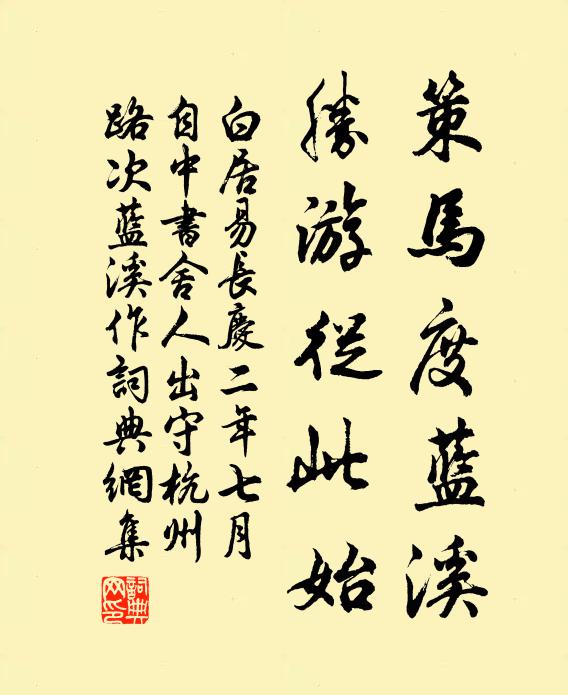 策馬度藍溪
勝游從此始
白居易長慶二年七月
自中書舍人出守杭州
路次藍溪作詞典網集
詞典網印